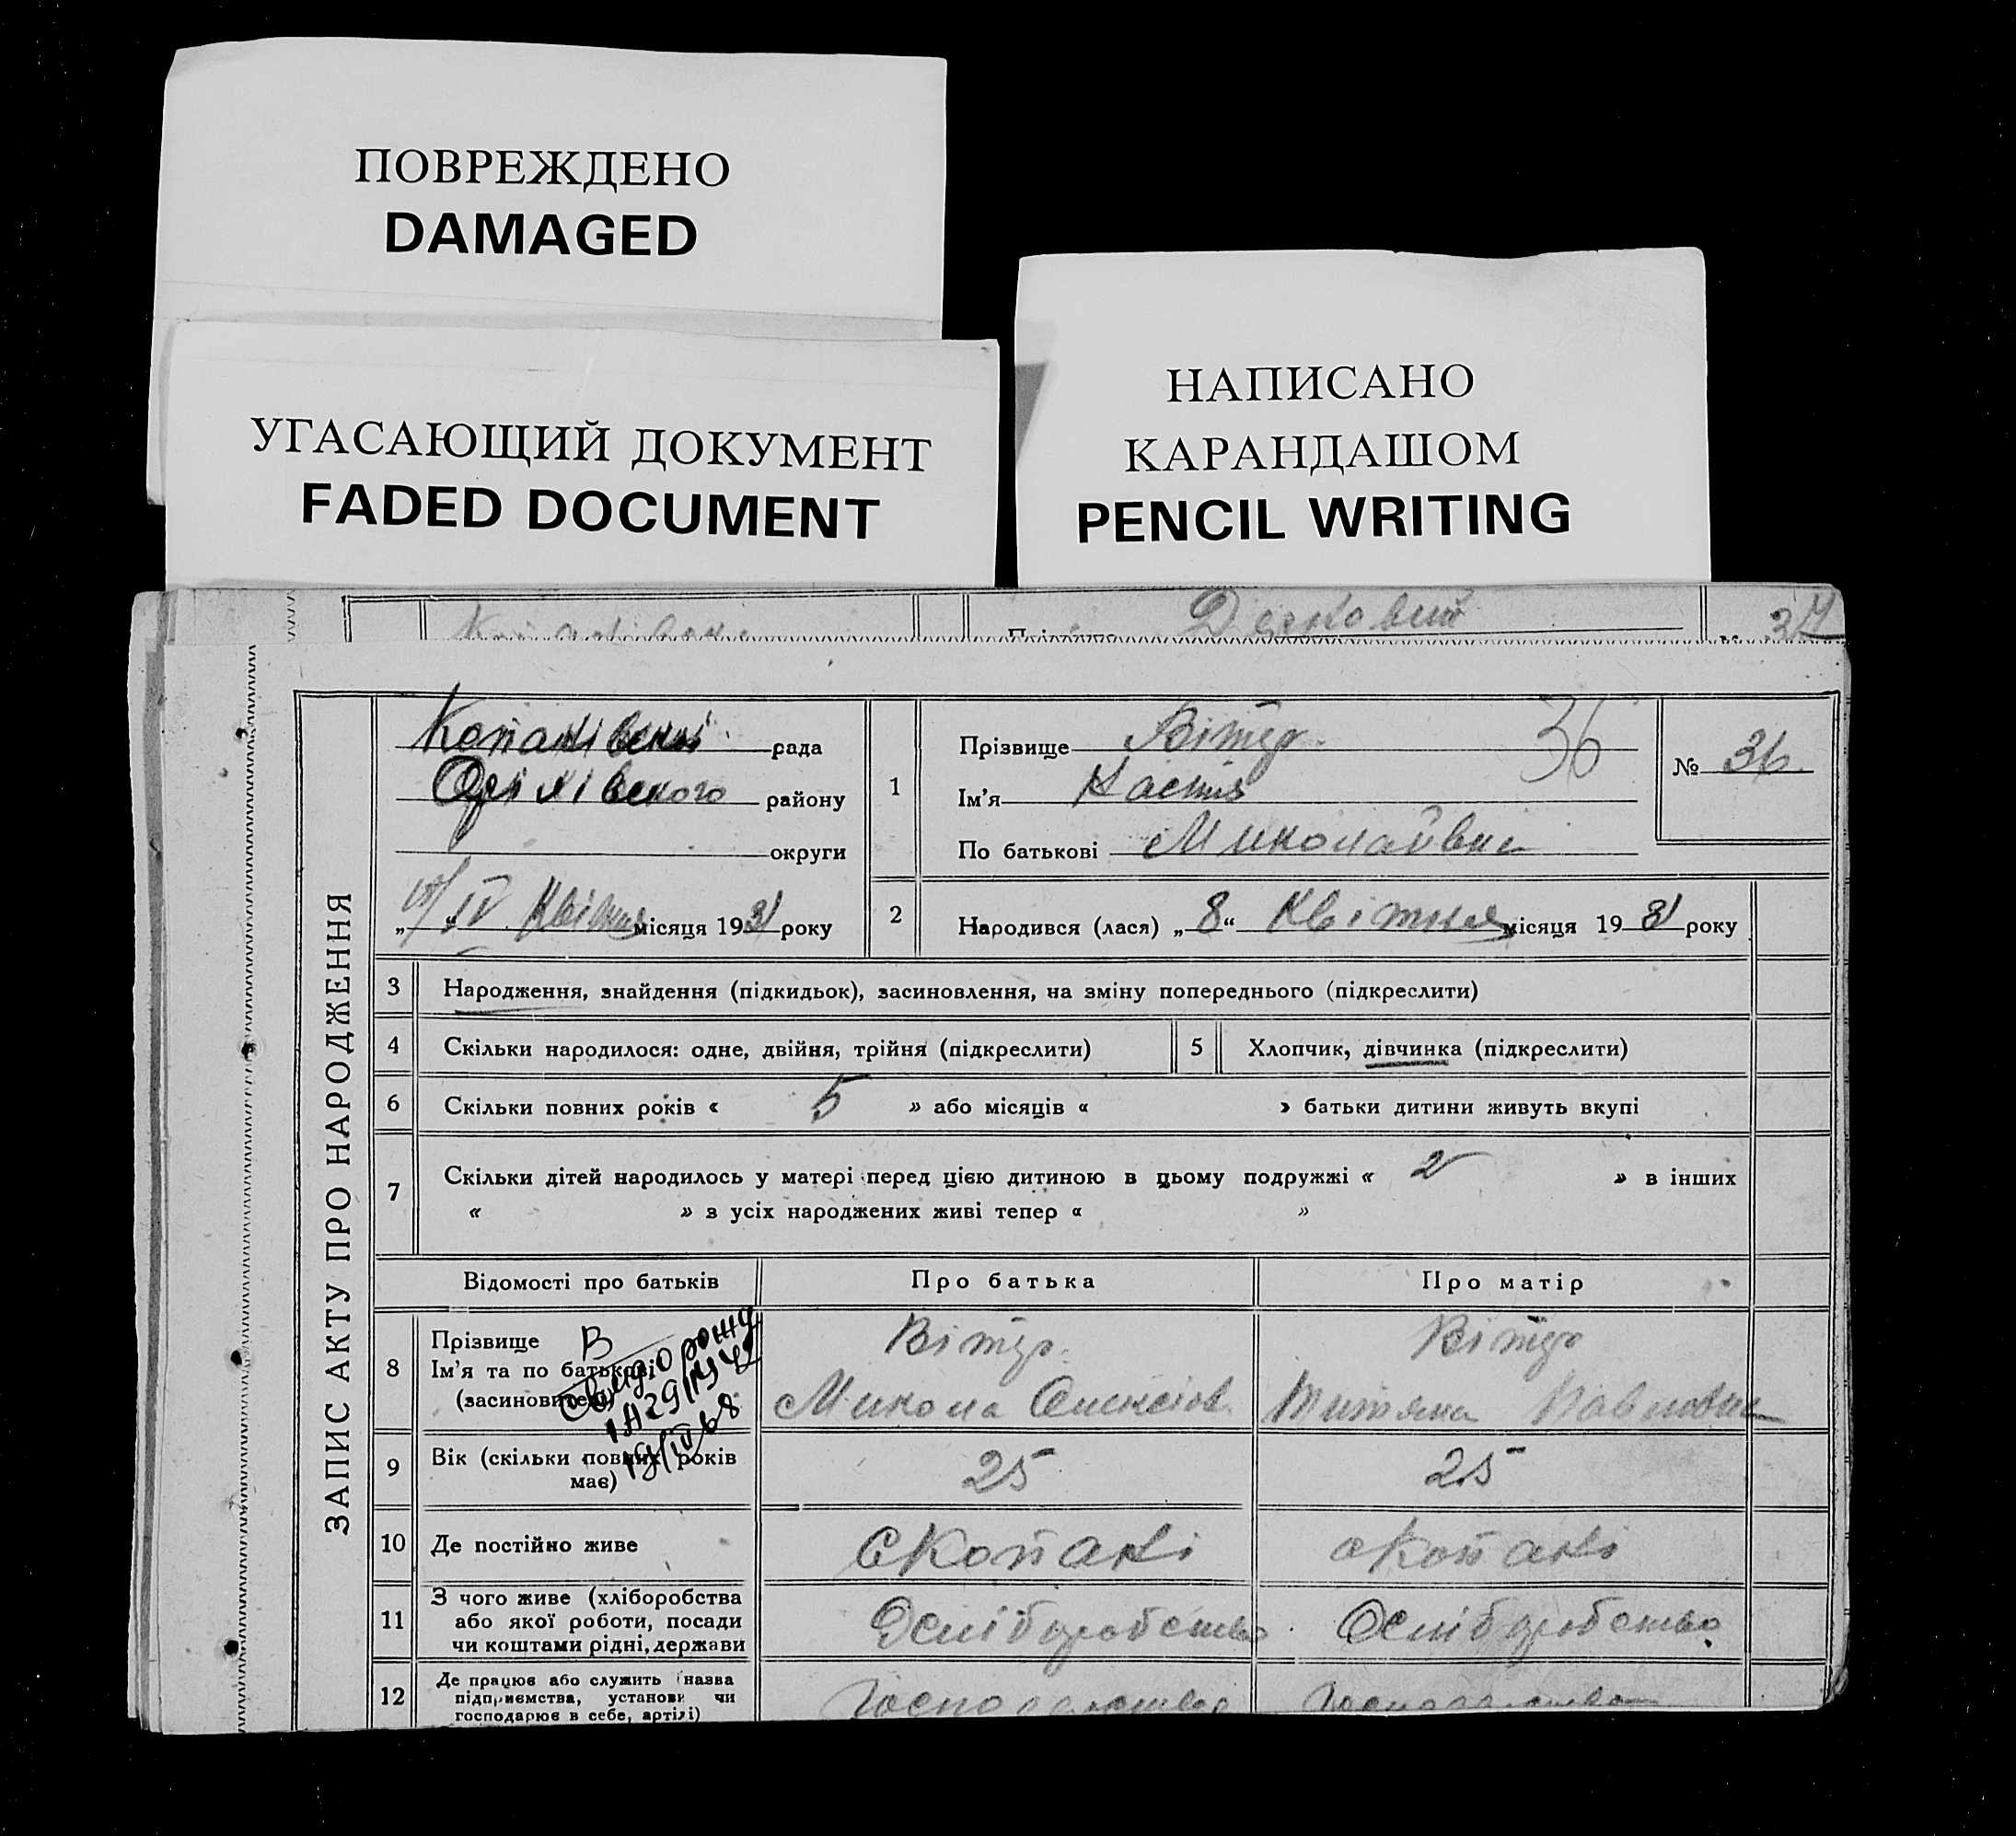 ПОВРЕЖДЕНО
DAMAGED
УГАСАЮЩИЙ ДОКУМЕНТ
FADED DOCUMENT
НАПИСАНО
КАРАНДАШОМ
PENCIL WRITING
ЗАПИС АКТУ ПРО НАРОДЖЕННЯ
Копанівської рада
Оріхівського району
округи
IV Квітня місяця 1931 року
1
Прізвище Вітер 36
Ім'я Настя
По батькові Миколаївна
№ 36
2 Народився (лася) „8“ Квітня місяця 1931 року
3 Народження, знайдення (підкидьок), засиновлення, на зміну попереднього (підкреслити)
4 Скільки народилося: одне, двійня, трійня (підкреслити) 5 Хлопчик, дівчинка (підкреслити)
6 Скільки повних років « 5 » або місяців « » батьки дитини живуть вкупі
7 Скільки дітей народилось у матері перед цією дитиною в цьому подружжі « 2 » в інших
« » з усіх народжених живі тепер « »
Відомості про батьків Про батька Про матір
8 Прізвище
Ім'я та по батькові
(засновителя)
В
Вітер
Микола Олексіов.
Вітер
Павловна
9 Вік (скільки повних років
має) 25 25
10 Де постійно живе с Копані с Копані
11 З чого живе (хліборобства
або якої роботи, посади
чи коштами рідні, держави
12 Де працює або служить (назва
підприємства, установи чи
господарює в себе, артілі)